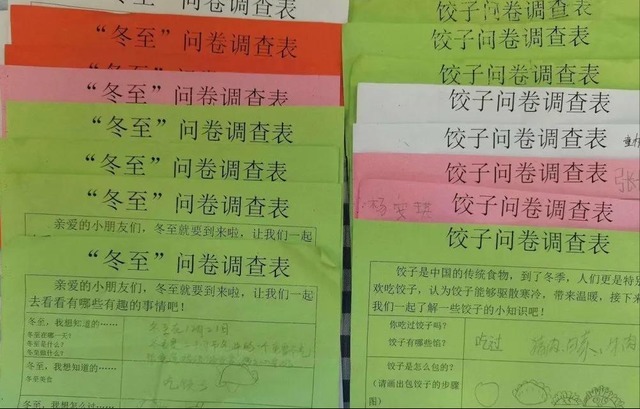 “冬至”问卷调查表
“冬至”问卷调查表
“冬至”问卷调查表
“冬至”问卷调查表
“冬至”问卷调查表
“冬至”问卷调查表
亲爱的小朋友们，冬至就要到来啦，让我们一起
“冬至”问卷调查表
亲爱的小朋友们，冬至就要到来啦，让我们一起
去看看有哪些有趣的事情吧！
冬至，我想知道的……
冬至在哪一天？
冬至是什么？
冬至做什么？
冬至，我想知道的……
冬至美食
吃饺子
冬至，我想怎么过……
饺子问卷调查表
饺子问卷调查表
饺子问卷调查表
饺子问卷调查表
饺子问卷调查表
饺子问卷调查表
张
饺子问卷调查表
饺子问卷调查表
饺子是中国的传统食物，到了冬季，人们更是特别
欢吃饺子，认为饺子能够驱散寒冷，带来温暖，接下来
我们一起了解一些饺子的小知识吧！
你吃过饺子吗？
饺子有哪些馅？
吃过
饺子是怎么包的？
(请画出包饺子的步骤
图)